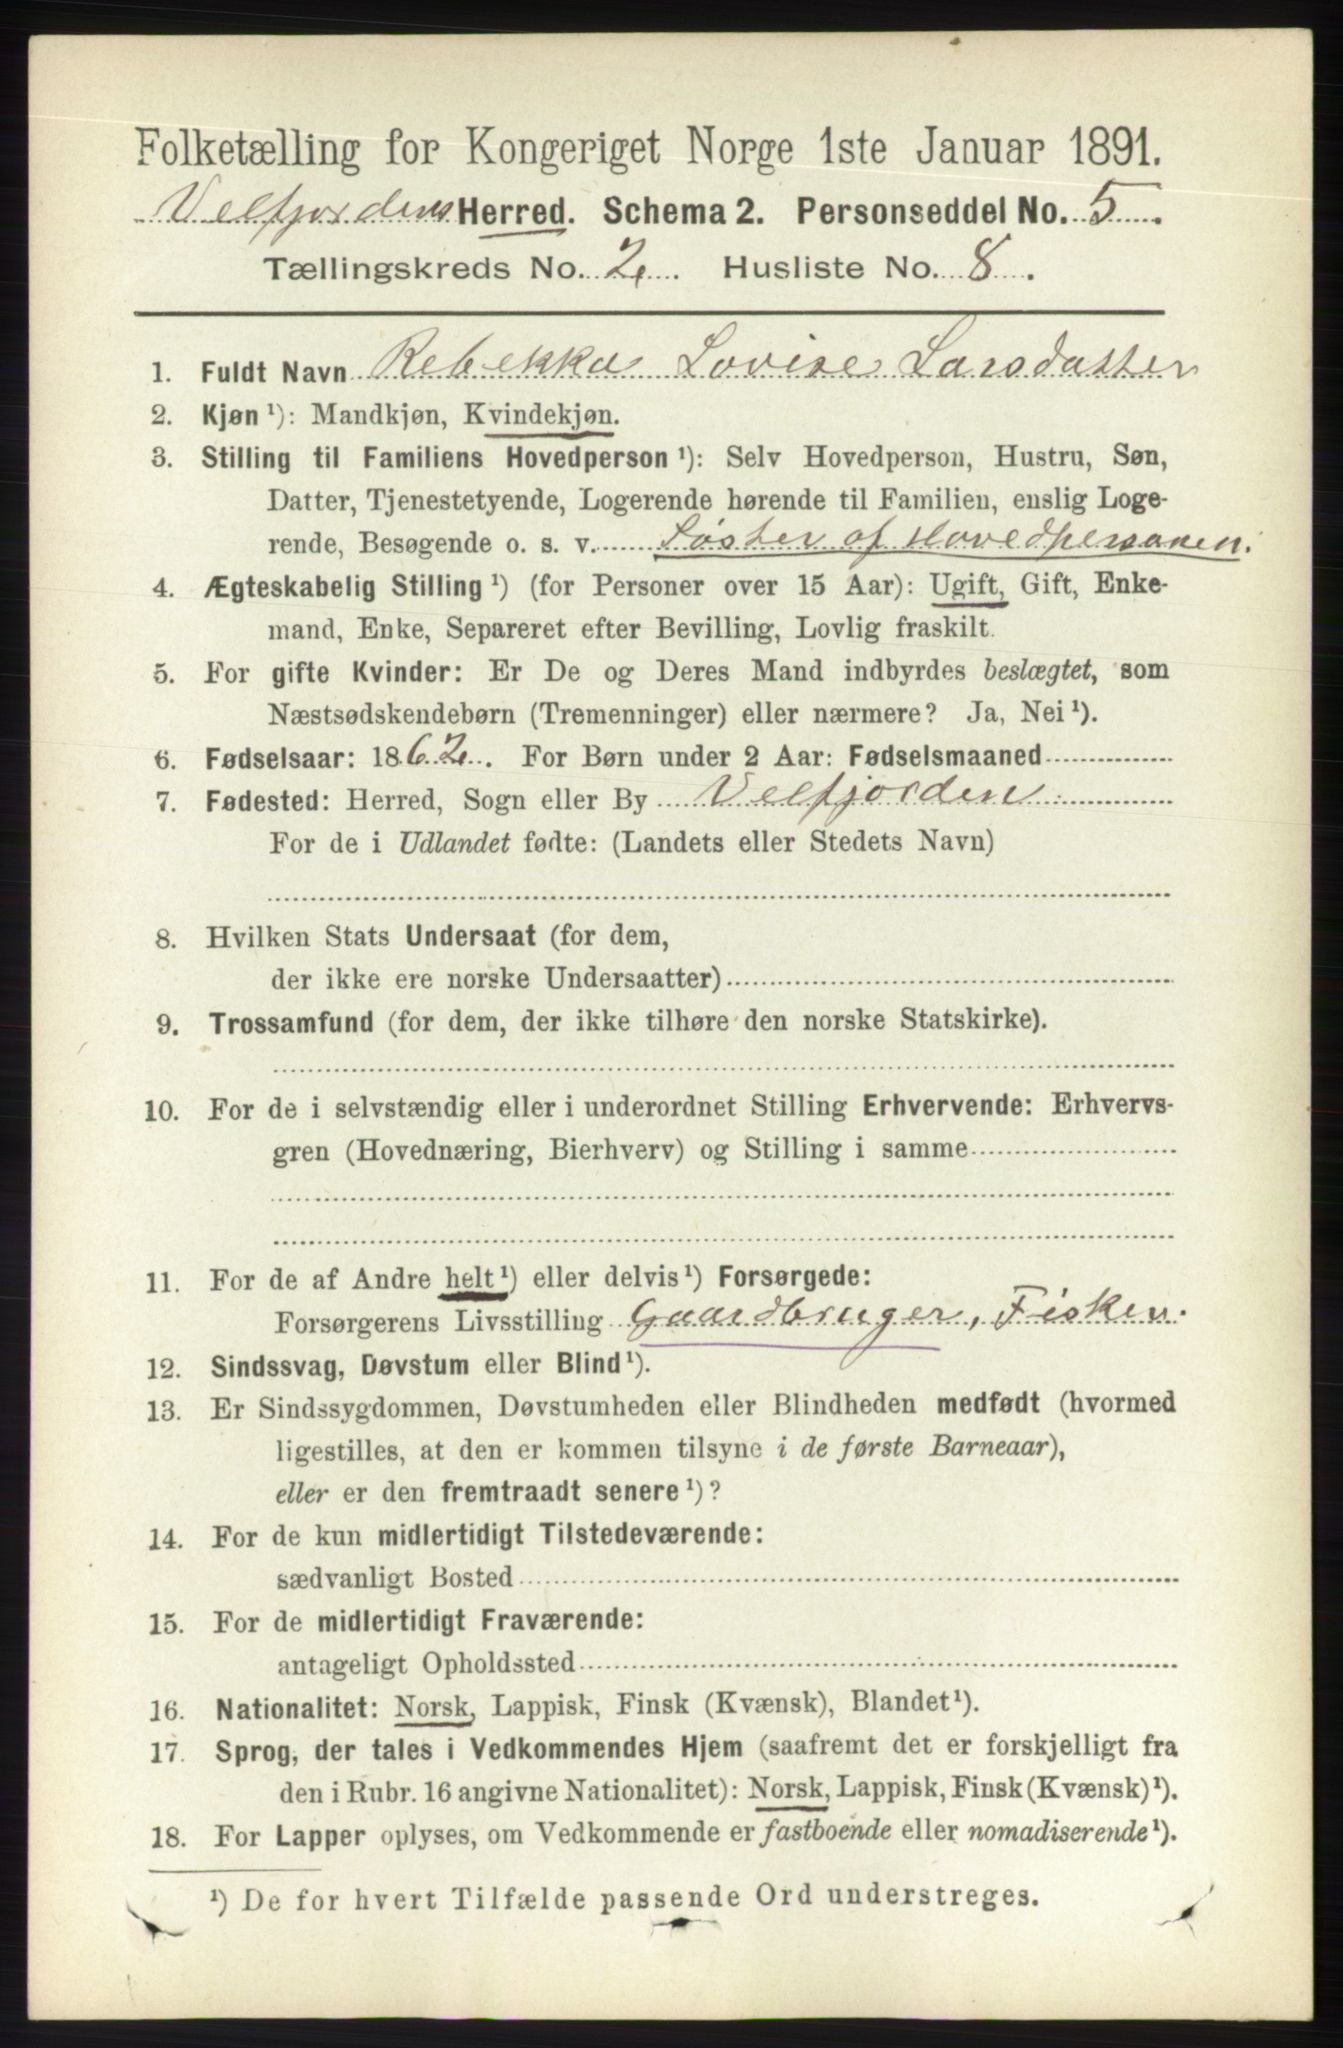 Folketælling for Kongeriget Norge 1ste Januar 1891.
Velfjordens Herred. Schema 2. Personseddel No. 5.
Tællingskreds No. 2. Husliste No. 8.
1. Fuldt Navn Rebekka Lovise Larsdatter
2. Kjøn ¹): Mandkjøn, Kvindekjøn.
3. Stilling til Familiens Hovedperson ¹): Selv Hovedperson, Hustru, Søn,
Datter, Tjenestetyende, Logerende hørende til Familien, enslig Loge-
rende, Besøgende o. s. v. Søster af Hovedpersonen.
4. Ægteskabelig Stilling ¹) (for Personer over 15 Aar): Ugift, Gift, Enke-
mand, Enke, Separeret efter Bevilling, Lovlig fraskilt.
5. For gifte Kvinder: Er De og Deres Mand indbyrdes beslægtet, som
Næstsødskendebørn (Tremenninger) eller nærmere? Ja, Nei ¹).
6. Fødselsaar: 1862. For Børn under 2 Aar: Fødselsmaaned
7. Fødested: Herred, Sogn eller By Velfjorden
For de i Udlandet fødte: (Landets eller Stedets Navn)
8. Hvilken Stats Undersaat (for dem,
der ikke ere norske Undersaatter)
9. Trossamfund (for dem, der ikke tilhøre den norske Statskirke).
10. For de i selvstændig eller i underordnet Stilling Erhvervende: Erhvervs-
gren (Hovednæring, Bierhverv) og Stilling i samme
11. For de af Andre helt ¹) eller delvis ¹) Forsørgede:
Forsørgerens Livsstilling Gaardbruger, Fisker.
12. Sindssvag, Døvstum eller Blind ¹).
13. Er Sindssygdommen, Døvstumheden eller Blindheden medfødt (hvormed
ligestilles, at den er kommen tilsyne i de første Barneaar),
eller er den fremtraadt senere ¹)?
14. For de kun midlertidigt Tilstedeværende:
sædvanligt Bosted
15. For de midlertidigt Fraværende:
antageligt Opholdssted
16. Nationalitet: Norsk, Lappisk, Finsk (Kvænsk), Blandet ¹).
17. Sprog, der tales i Vedkommendes Hjem (saafremt det er forskjelligt fra
den i Rubr. 16 angivne Nationalitet): Norsk, Lappisk, Finsk (Kvænsk) ¹).
18. For Lapper oplyses, om Vedkommende er fastboende eller nomadiserende ¹).
¹) De for hvert Tilfælde passende Ord understreges.